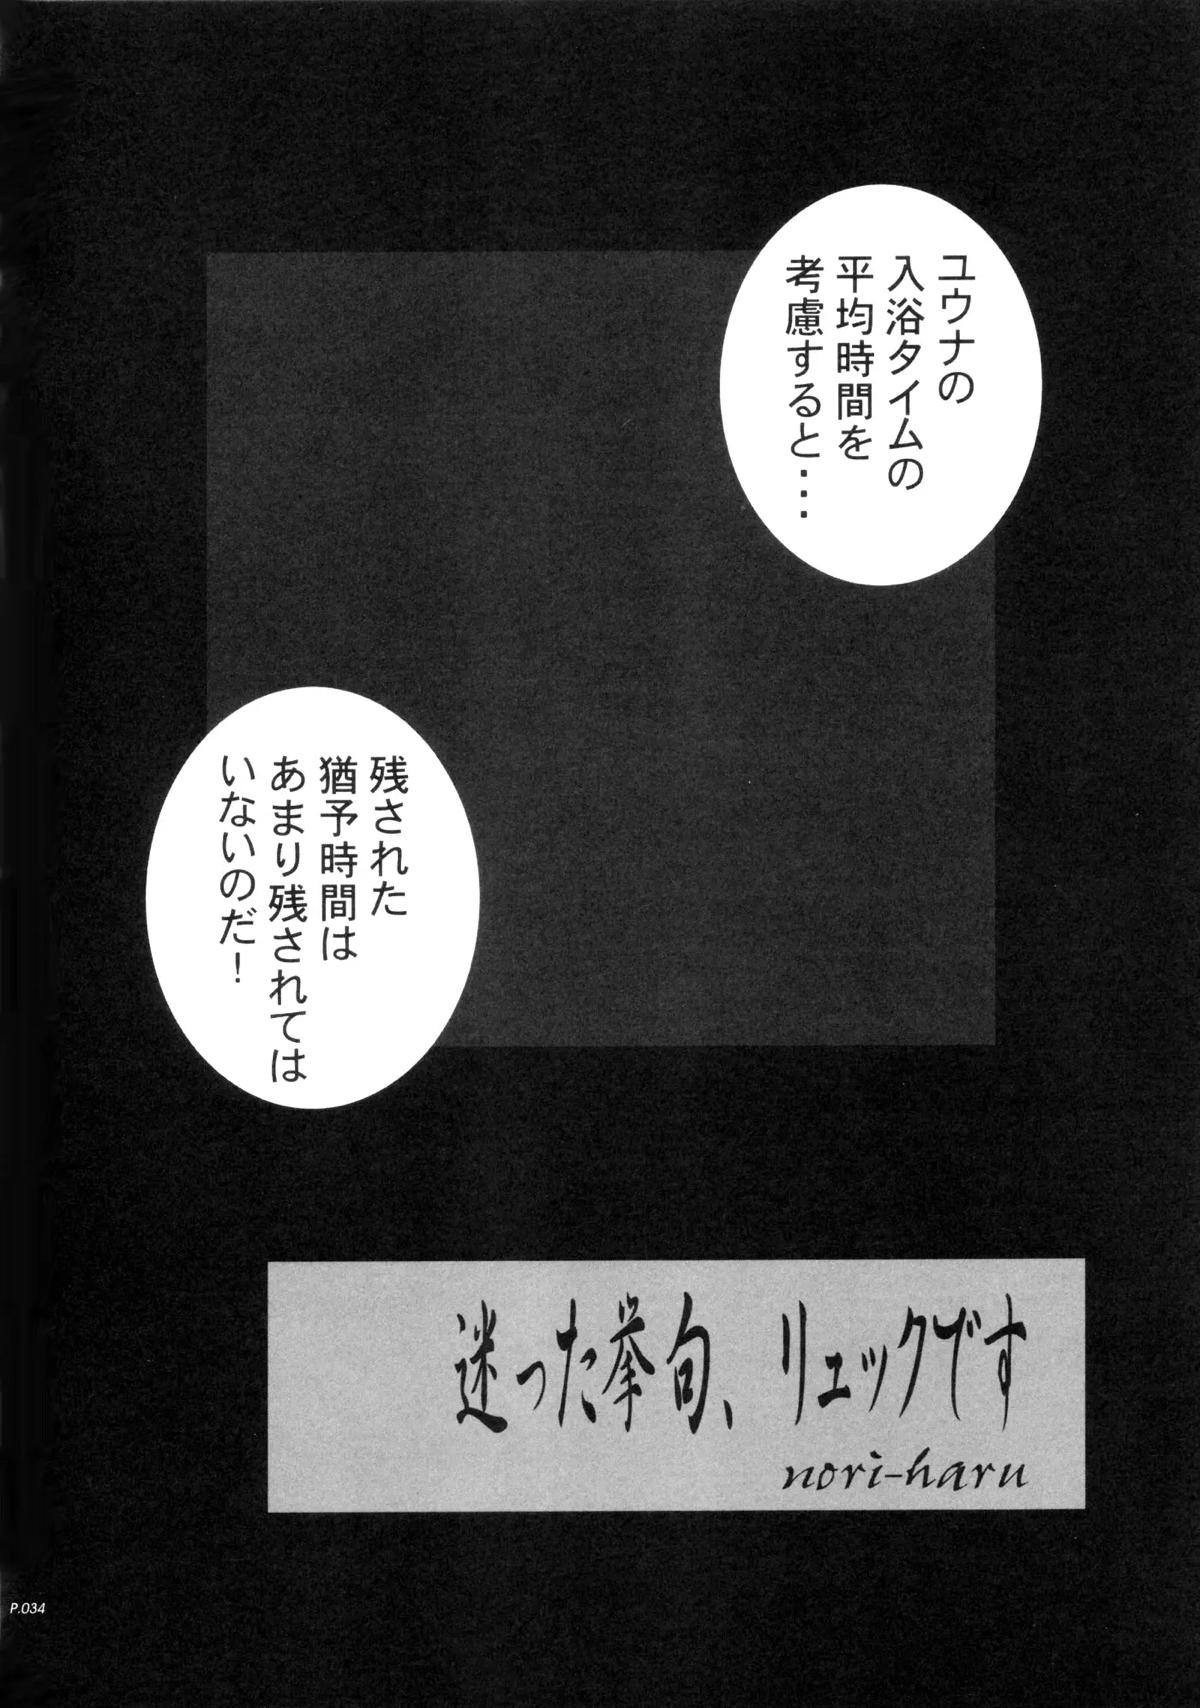 ユウナの
入浴タイムの
平均時間を
考慮すると・・・
残された
猶予時間は
あまり残されては
いないのだ！
迷った挙句、リュックです
nori-haru
P.034